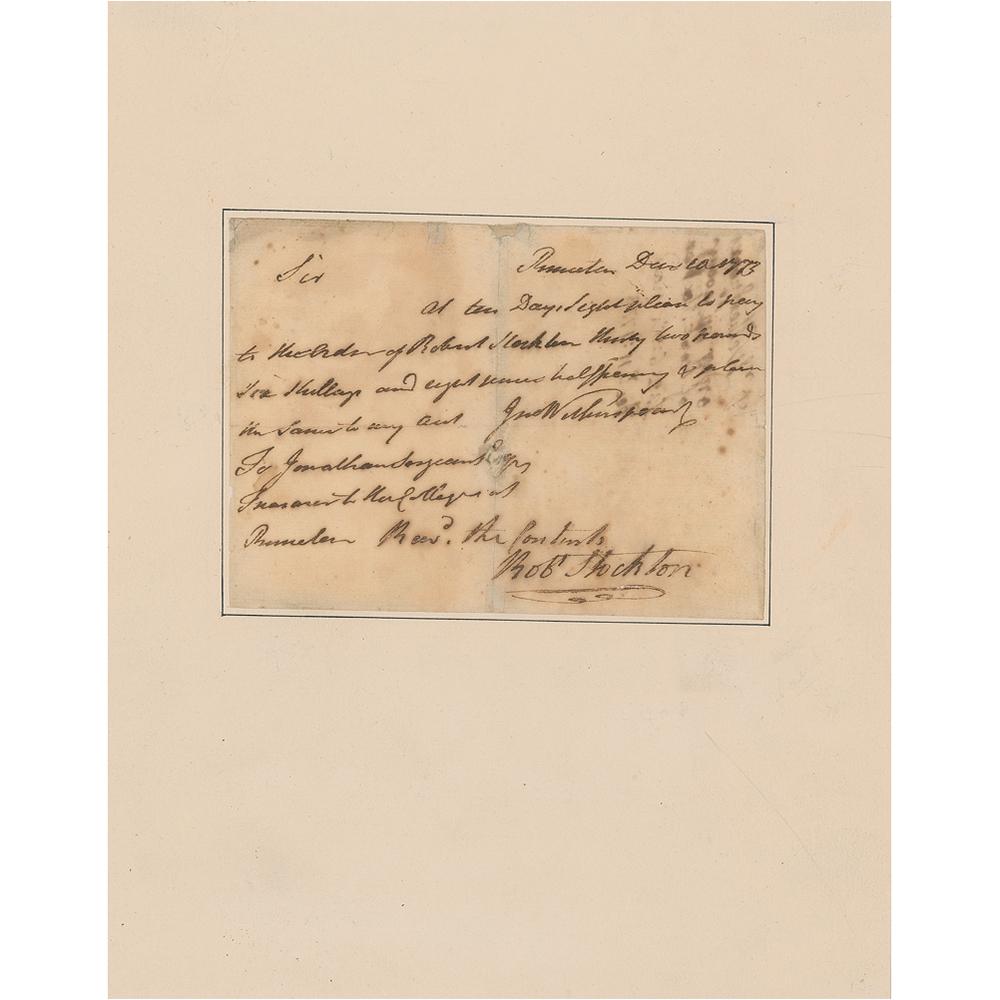 Sir Princeton Decr 10 1773
At ten Days sight please to pay
to the Order of Robert Stockton thirty two pounds
six Shillings and eight pence halfpenny & place
the same to my Acct Jno Witherspoon
To Jonathan Sergeant Esqr
Treasurer to the College at
Princeton Recd. the Contents
Robt Stockton